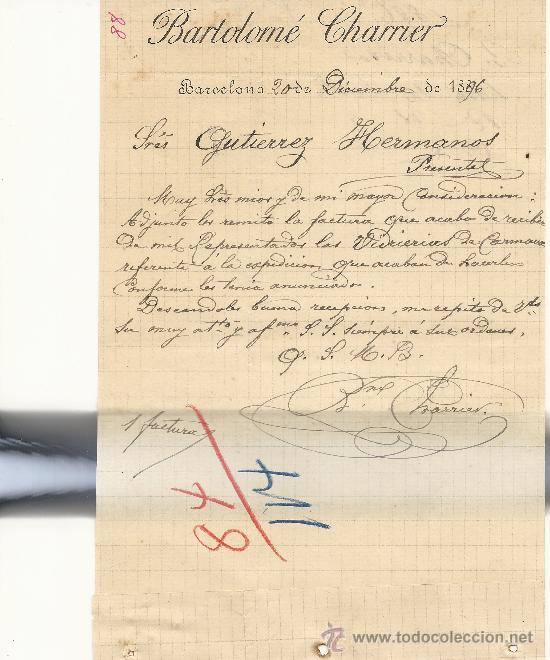 88
Bartolomé Charrier
Barcelona 20 de Diciembre de 1886
Sres Gutierrez Hermanos
Presente
Muy Sres mios y de mi mayor Consideracion:
Adjunto les remito la factura que acabo de recibir
de mis Representados las Vidrierias de Carmaux
referente á la expedicion que acaban de hacerles
Conforme les tenia anunciado.
Deseandoles buena recepcion, me repito de Vds
su muy atto y afmo S. S. siempre a sus ordenes,
Q. S. M. B.
Bme Charrier
1 factura
84
114
todocoleccion
www.todocoleccion.net